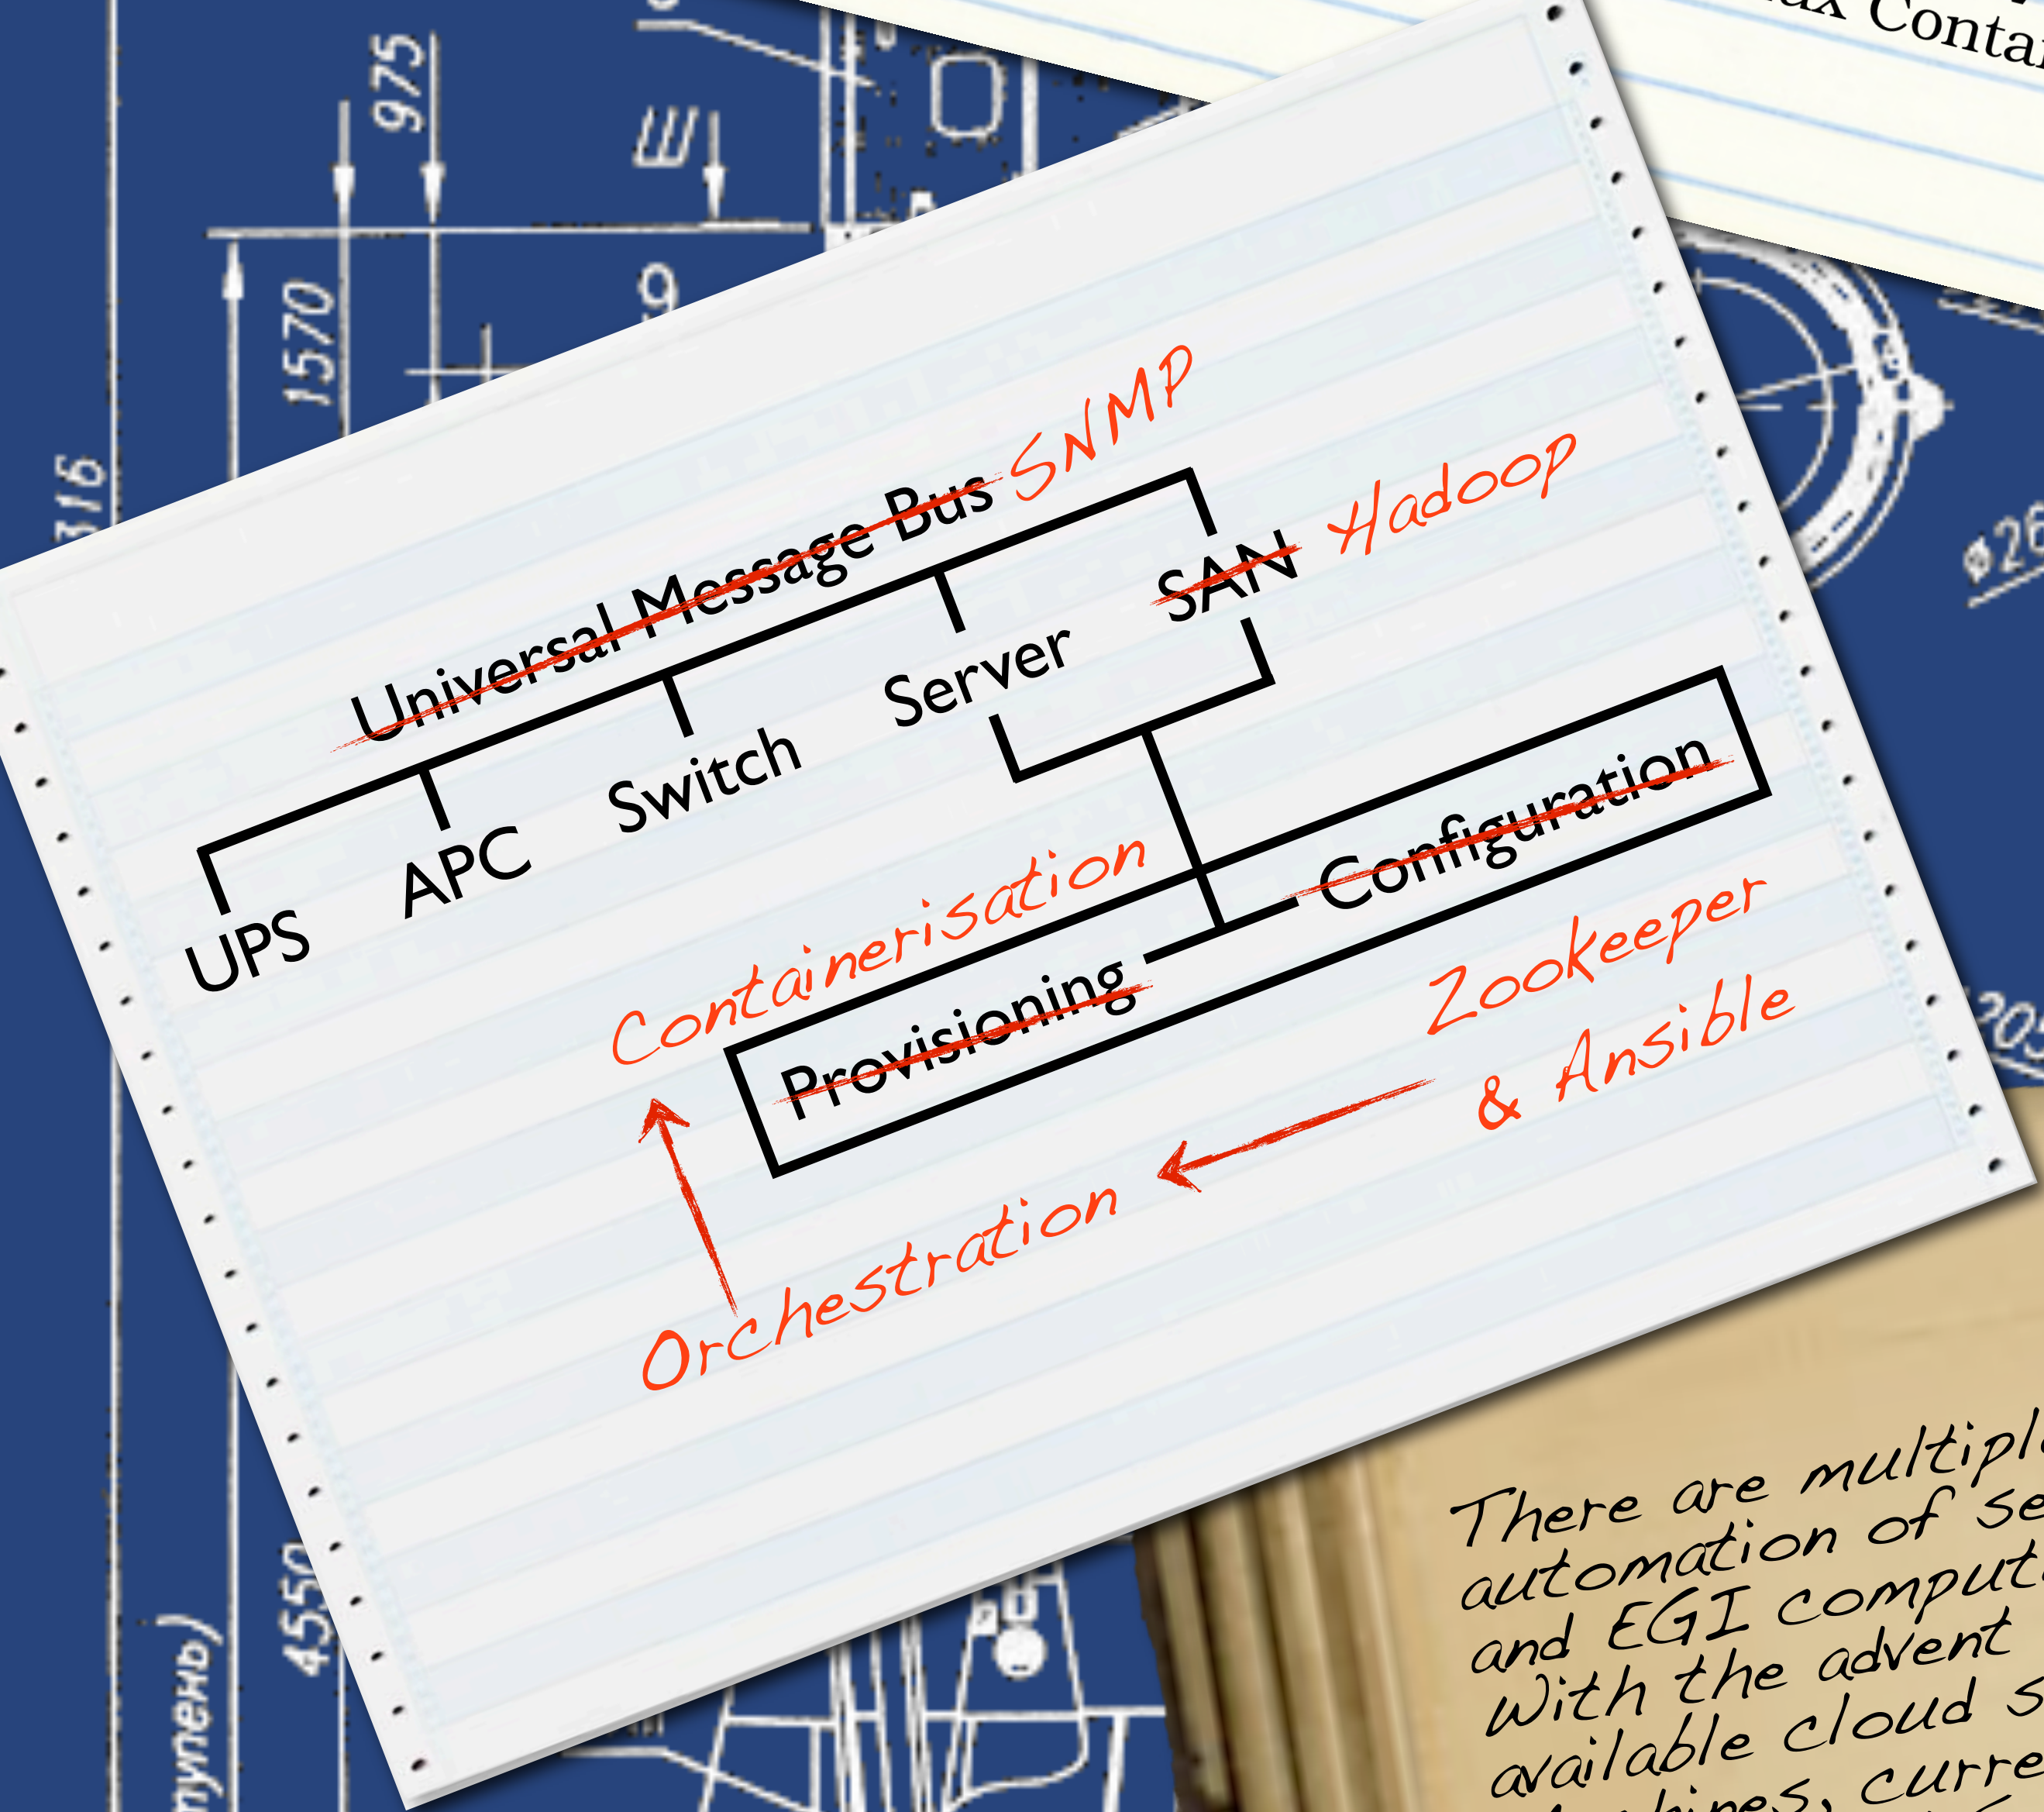 Conta
975
E
1570
9
316
Universal Message Bus SNMP
SAN Hadoop
Server
Switch
APC
UPS
Configuration
Containerisation
Provisioning
Zookeeper
& Ansible
Orchestration
ø26
205
4550
There are multipl
automation of se
and EGI comput
With the advent
available cloud s
curre